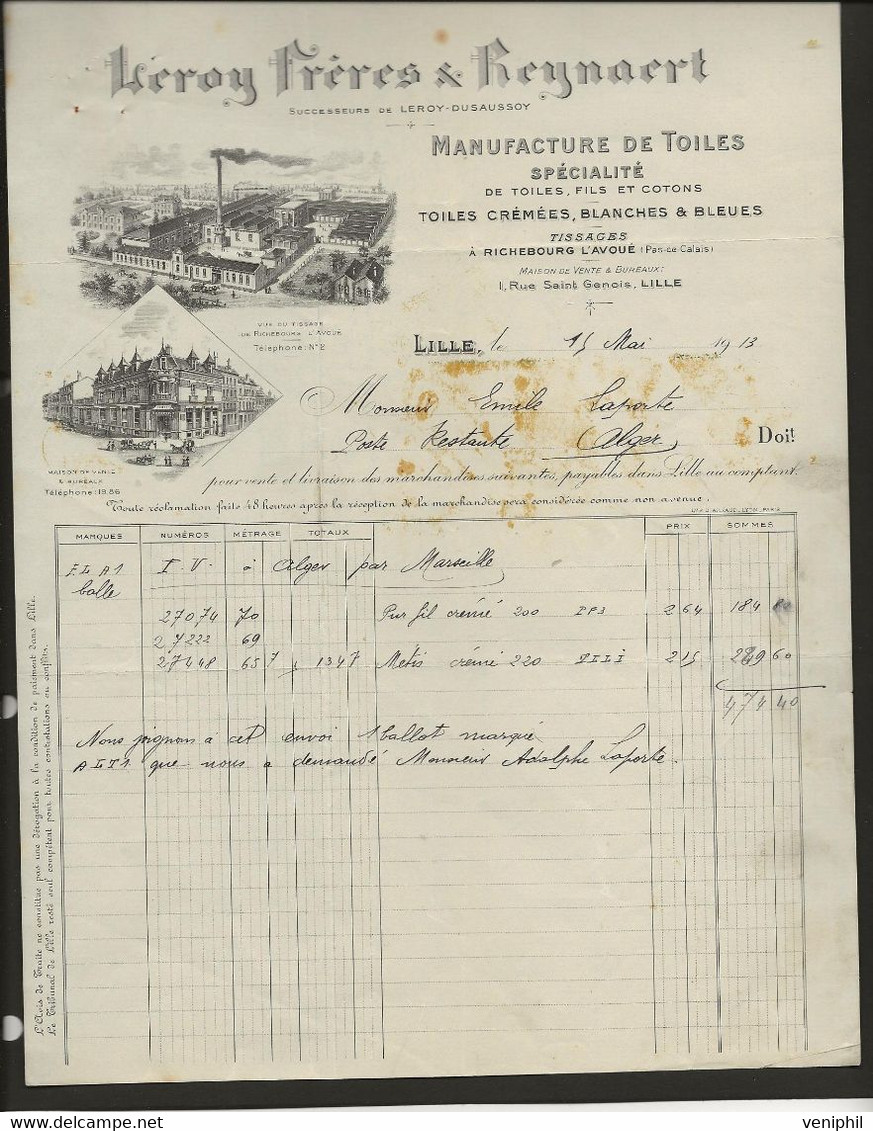 Leroy Frères & Reynaert
SUCCESSEURS DE LEROY-DUSAUSSOY
MANUFACTURE DE TOILES
SPÉCIALITÉ
DE TOILES, FILS ET COTONS
TOILES CRÉMÉES, BLANCHES & BLEUES
TISSAGES
À RICHEBOURG L'AVOUÉ (Pas-de-Calais)
MAISON DE VENTE & BUREAUX:
1, Rue Saint Genois, LILLE
VUE DU TISSAGE
DE RICHEBOURG L'AVOUÉ
Téléphone: N° 2
MAISON DE VENTE
& BUREAUX
Téléphone: 19.86
LILLE, le 15 Mai 1913
Monsieur Emile Laporte
Poste Restante Alger Doit
pour vente et livraison des marchandises suivantes, payables dans Lille au comptant.
Toute réclamation faite 48 heures après la réception de la marchandise sera considérée comme non avenue.
MARQUES NUMÉROS MÉTRAGE TOTAUX PRIX SOMMES
ELA1 I.V. à Alger par Marseille
balle
27074 70 Pur fil crémé 200 IP3 2 64 184 80
27222 69
27448 65 7 134 7 Métis crémé 220 2 15 289 60
474 40
Nous joignons à cet envoi 1 ballot marqué
ALT1 que nous a demandé Monsieur Adolphe Laporte.
L'Avis de Traite ne constitue pas une dérogation à la condition de paiement dans Lille.
Le Tribunal de Lille reste seul compétent pour toutes contestations ou conflits.
veniphil